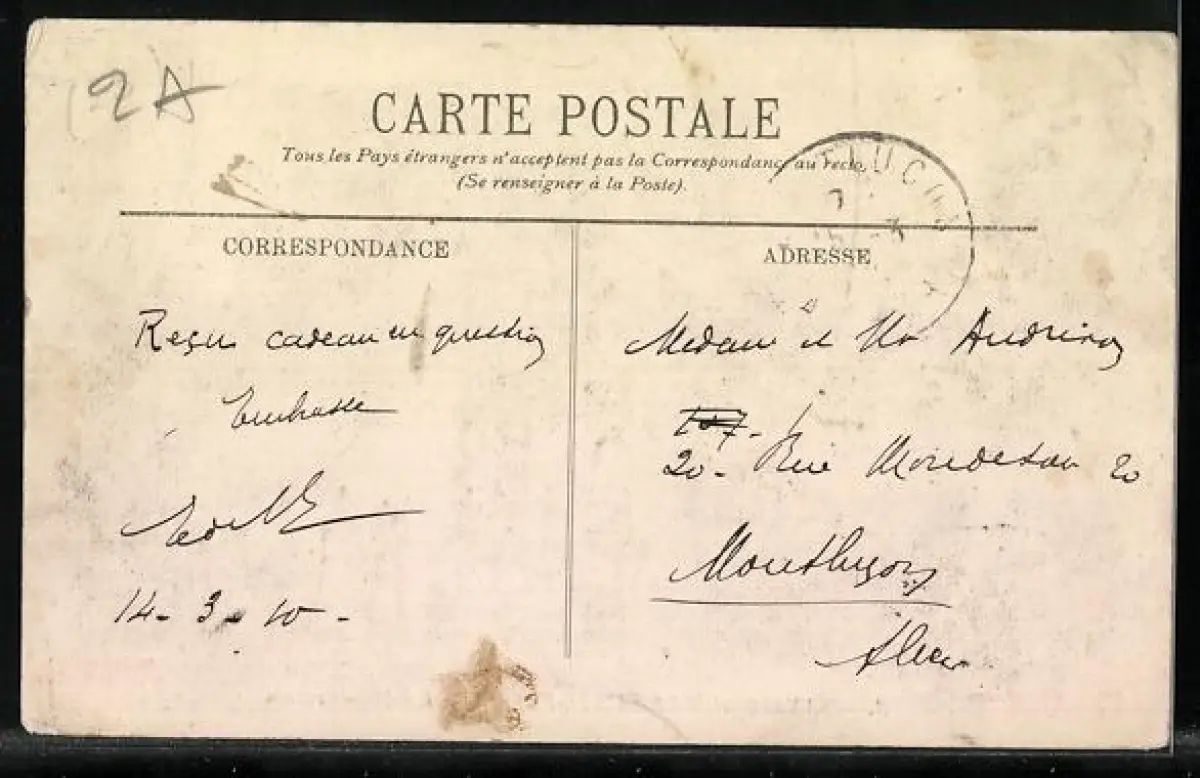 2A
CARTE POSTALE
Tous les Pays étrangers n'acceptent pas la Correspondance au recto,
(Se renseigner à la Poste).
CORRESPONDANCE
ADRESSE
Reçu cadeau en question
Embrasse
14-3-10-
Madame et Mr
107-
20- Rue 20
Montluçon
Allier